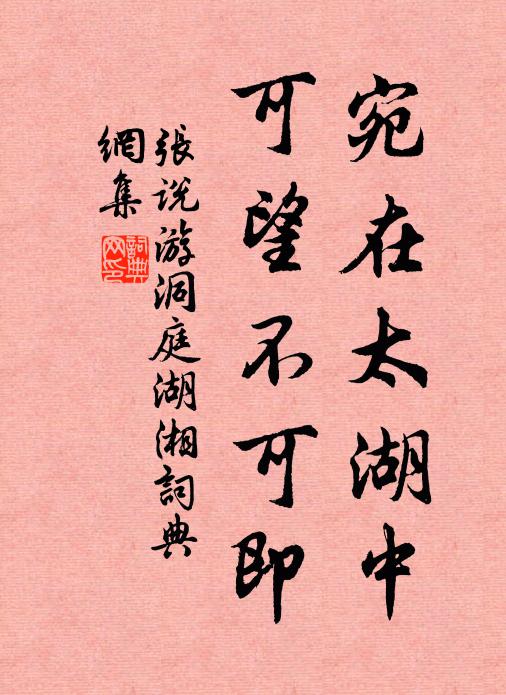 宛在太湖中
可望不可即
張說游洞庭湖湘詞典
網集
詞典
网印